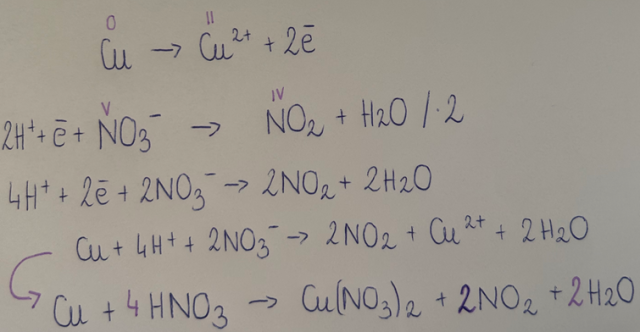 0 II
Cu → Cu²⁺ + 2ē
V IV
2H⁺ + ē + NO₃⁻ → NO₂ + H₂O /·2
4H⁺ + 2ē + 2NO₃⁻ → 2NO₂ + 2H₂O
Cu + 4H⁺ + 2NO₃⁻ → 2NO₂ + Cu²⁺ + 2H₂O
Cu + 4HNO₃ → Cu(NO₃)₂ + 2NO₂ + 2H₂O